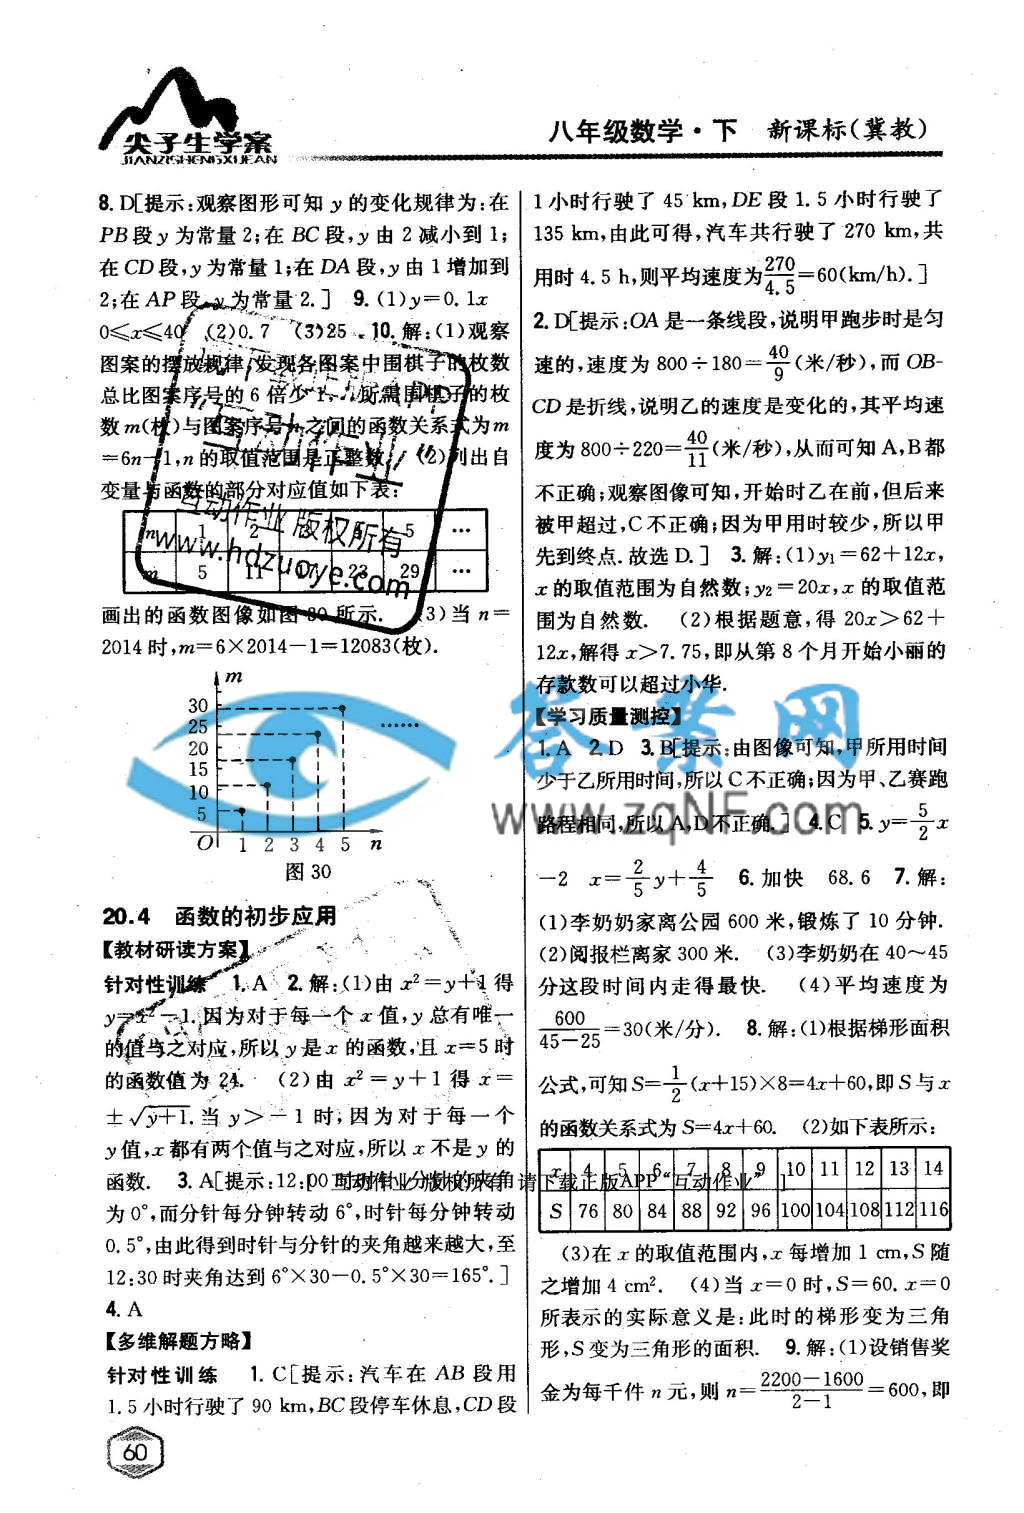 尖子生学案
JIANZISHENGXUEAN
八年级数学·下 新课标(冀教)
8. D[提示:观察图形可知 y 的变化规律为:在
PB 段 y 为常量 2;在 BC 段,y 由 2 减小到 1;
在 CD 段,y 为常量 1;在 DA 段,y 由 1 增加到
2;在 AP 段,y 为常量 2.] 9. (1)y=0.1x
0≤x≤40 (2)0.7 (3)25 10. 解:(1)观察
图案的摆放规律,发现各图案中围棋子的枚数
总比图案序号的 6 倍少 1,所需围棋子的枚
数 m(枚)与图案序号 n 之间的函数关系式为 m
=6n-1,n 的取值范围是正整数. (2)列出自
变量与函数的部分对应值如下表:
n 1 2 3 4 5 …
m 5 11 17 23 29 …
画出的函数图像如图 30 所示. (3)当 n=
2014 时,m=6×2014-1=12083(枚).
m
30
25
20
15
10
5
O 1 2 3 4 5 n
……
图 30
20.4 函数的初步应用
【教材研读方案】
针对性训练 1. A 2. 解:(1)由 x²=y+1 得
y=x²-1. 因为对于每一个 x 值,y 总有唯一
的值与之对应,所以 y 是 x 的函数,且 x=5 时
的函数值为 24. (2)由 x²=y+1 得 x=
±√(y+1). 当 y>-1 时,因为对于每一个
y 值,x 都有两个值与之对应,所以 x 不是 y 的
函数. 3. A[提示:12:00 时时针与分针的夹角
为 0°,而分针每分钟转动 6°,时针每分钟转动
0.5°,由此得到时针与分针的夹角越来越大,至
12:30 时夹角达到 6°×30-0.5°×30=165°.]
4. A
【多维解题方略】
针对性训练 1. C[提示:汽车在 AB 段用
1.5 小时行驶了 90 km,BC 段停车休息,CD 段
1 小时行驶了 45 km,DE 段 1.5 小时行驶了
135 km,由此可得,汽车共行驶了 270 km,共
用时 4.5 h,则平均速度为 270/4.5=60(km/h).]
2. D[提示:OA 是一条线段,说明甲跑步时是匀
速的,速度为 800÷180=40/9(米/秒),而 OB-
CD 是折线,说明乙的速度是变化的,其平均速
度为 800÷220=40/11(米/秒),从而可知 A,B 都
不正确;观察图像可知,开始时乙在前,但后来
被甲超过,C 不正确;因为甲用时较少,所以甲
先到终点. 故选 D.] 3. 解:(1)y₁=62+12x,
x 的取值范围为自然数;y₂=20x,x 的取值范
围为自然数. (2)根据题意,得 20x>62+
12x,解得 x>7.75,即从第 8 个月开始小丽的
存款数可以超过小华.
【学习质量测控】
1. A 2. D 3. B[提示:由图像可知,甲所用时间
少于乙所用时间,所以 C 不正确;因为甲、乙赛跑
路程相同,所以 A,D 不正确.] 4. C 5. y=5/2 x
-2 x=2/5 y+4/5 6. 加快 68.6 7. 解:
(1)李奶奶家离公园 600 米,锻炼了 10 分钟.
(2)阅报栏离家 300 米. (3)李奶奶在 40~45
分这段时间内走得最快. (4)平均速度为
600/(45-25)=30(米/分). 8. 解:(1)根据梯形面积
公式,可知 S=1/2(x+15)×8=4x+60,即 S 与 x
的函数关系式为 S=4x+60. (2)如下表所示:
x 4 5 6 7 8 9 10 11 12 13 14
S 76 80 84 88 92 96 100 104 108 112 116
(3)在 x 的取值范围内,x 每增加 1 cm,S 随
之增加 4 cm². (4)当 x=0 时,S=60. x=0
所表示的实际意义是:此时的梯形变为三角
形,S 变为三角形的面积. 9. 解:(1)设销售奖
金为每千件 n 元,则 n=(2200-1600)/(2-1)=600,即
60
"互动作业"
互动作业 版权所有
www.hdzuoye.com
答案网
www.zqNF.com
[ 互动作业 版权所有 请下载正版APP"互动作业" ]